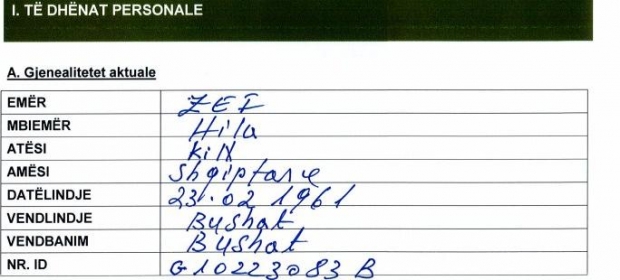 I. TË DHËNAT PERSONALE
A. Gjenealitetet aktuale
EMËR ZEF
MBIEMËR Hila
ATËSI KiN
AMËSI Shqiptare
DATËLINDJE 23.02 1961
VENDLINDJE Bushat
VENDBANIM Bushat
NR. ID G10223083B